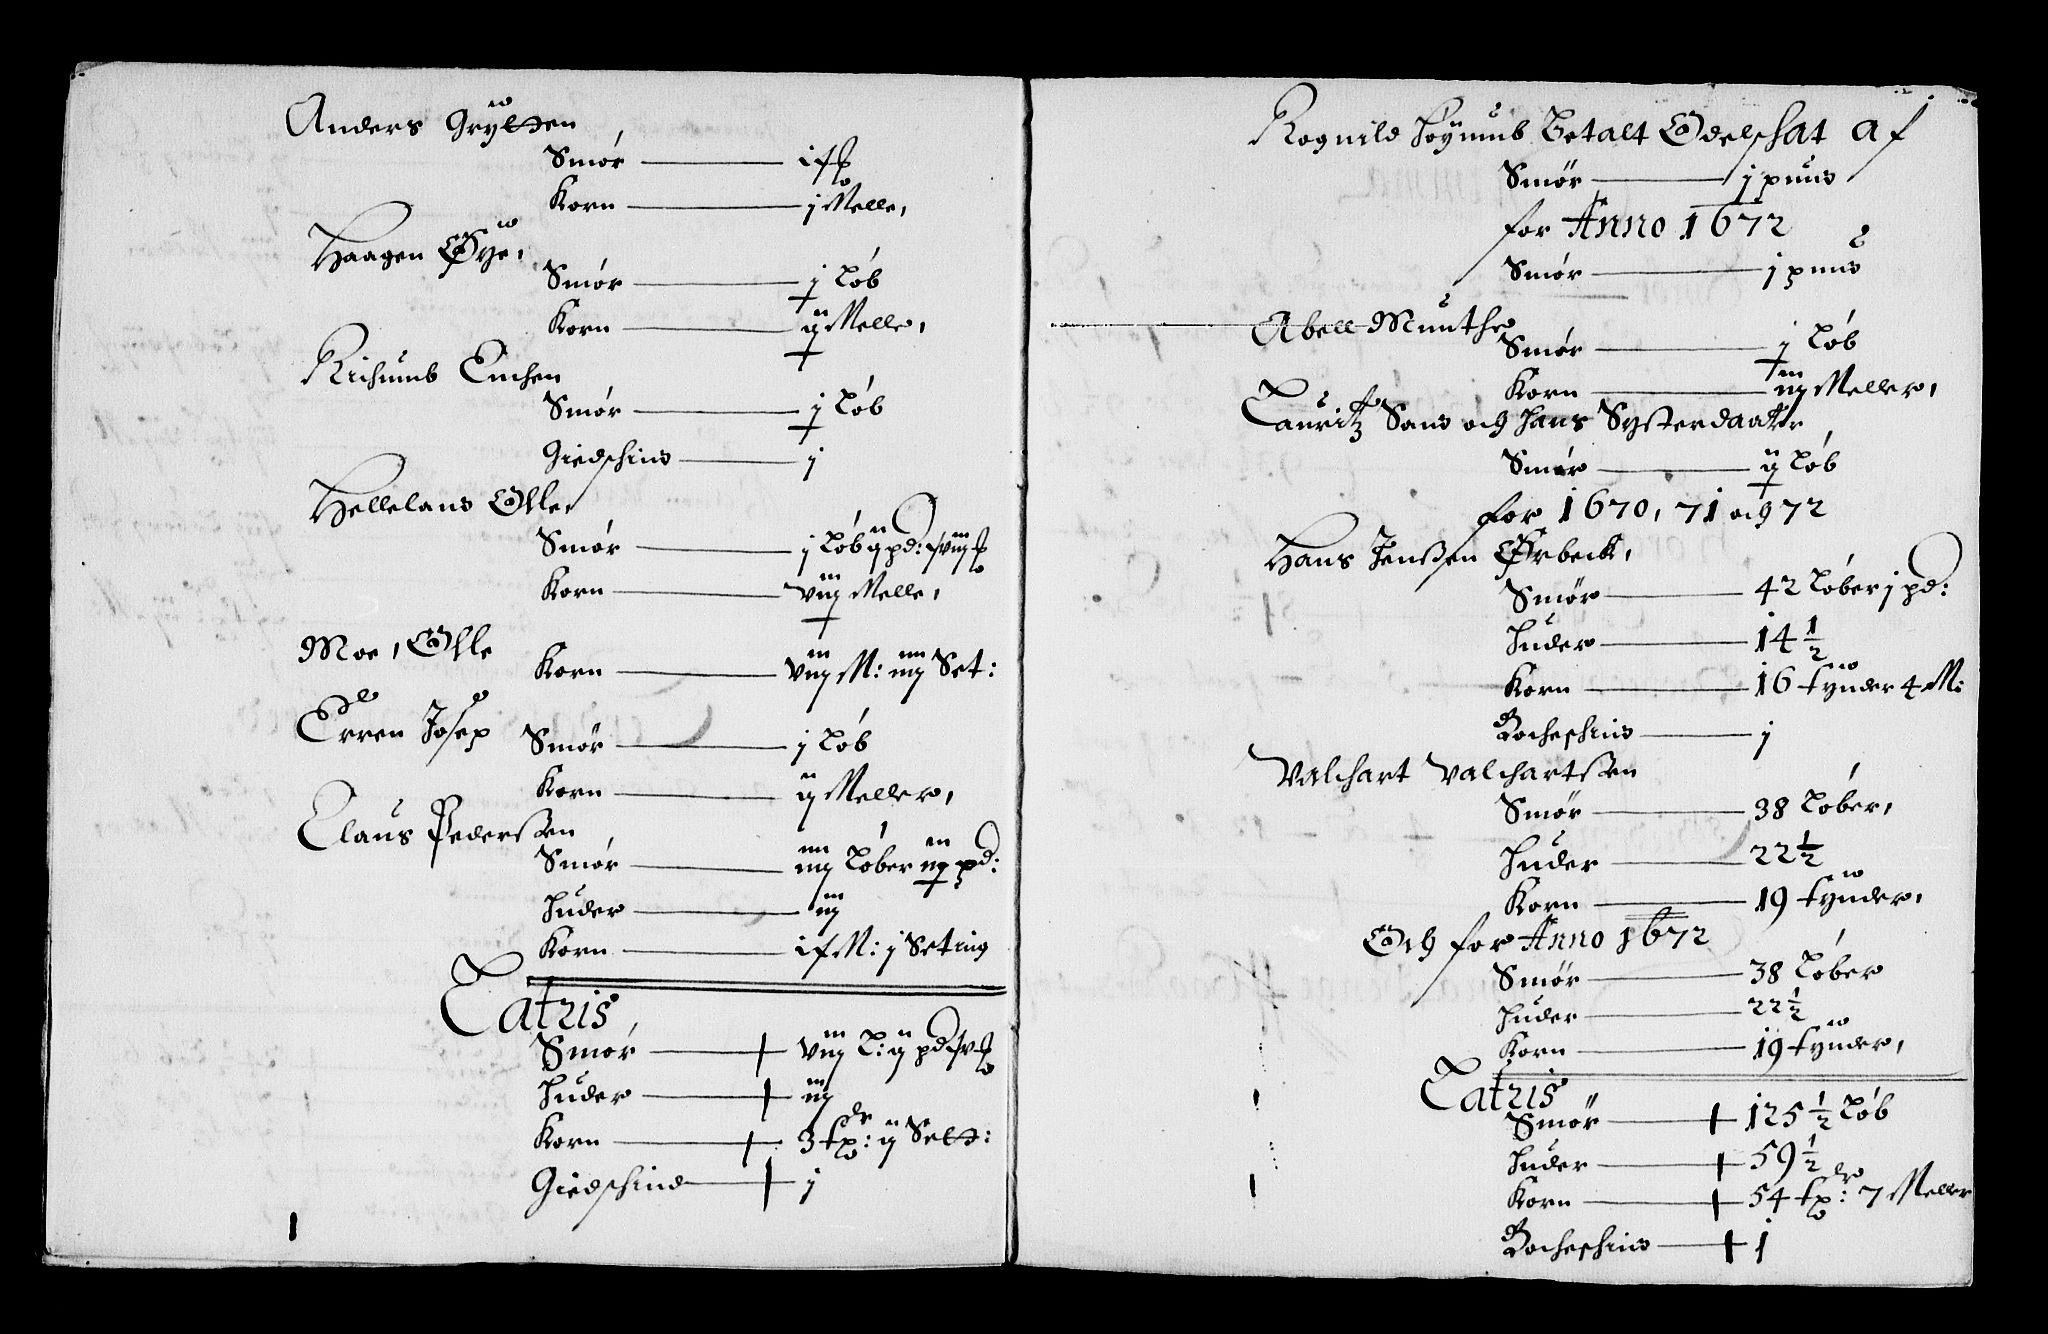 Anders Grytten
Smør — i ß
Korn — j Melle,
Haagen Øye,
Smør — j Løb
Korn — ij Melle,
Smør — j Løb
Giedschind — j
Helleland Olle,
Smør — j Løb ij pd:
Korn — viij Melle,
Moe, Olle
Korn — viij M: iiij Set:
Erren Josep
Smør — j Løb
Korn — ij Meller,
Claus Pederssen
Smør — iiij Løber iij pd:
Huder — iij
Korn — M: j Seting
Latris
Smør — viij L: ij pd
Huder — iij
Korn — 3 tp: ij Sett:
Giedschind — j
Rognild betalt Odelschat af
Smør — j pund
for Anno 1672
Smør — j pund
Abell Munthe
Smør — j Løb
Korn — iij Meller,
Lauritz Sand och hans Systerdaatter
Smør — ij Løb
for 1670, 71 och 72
Hans Jenssen Ørbeck,
Smør — 42 Løber j pd:
Huder — 14 1/2
Korn — 16 tynder 4 M:
Bocheschind — j
Valchart Valchartssen
Smør — 38 Løber,
Huder — 22 1/2
Korn — 19 tynder,
Och for Anno 1672
Smør — 38 Løber
Huder — 22 1/2
Korn — 19 tynder,
Latris
Smør — 125 1/2 Løb
Huder — 59 1/2
Korn — 54 tp: 7 Meller
Bocheschind — j